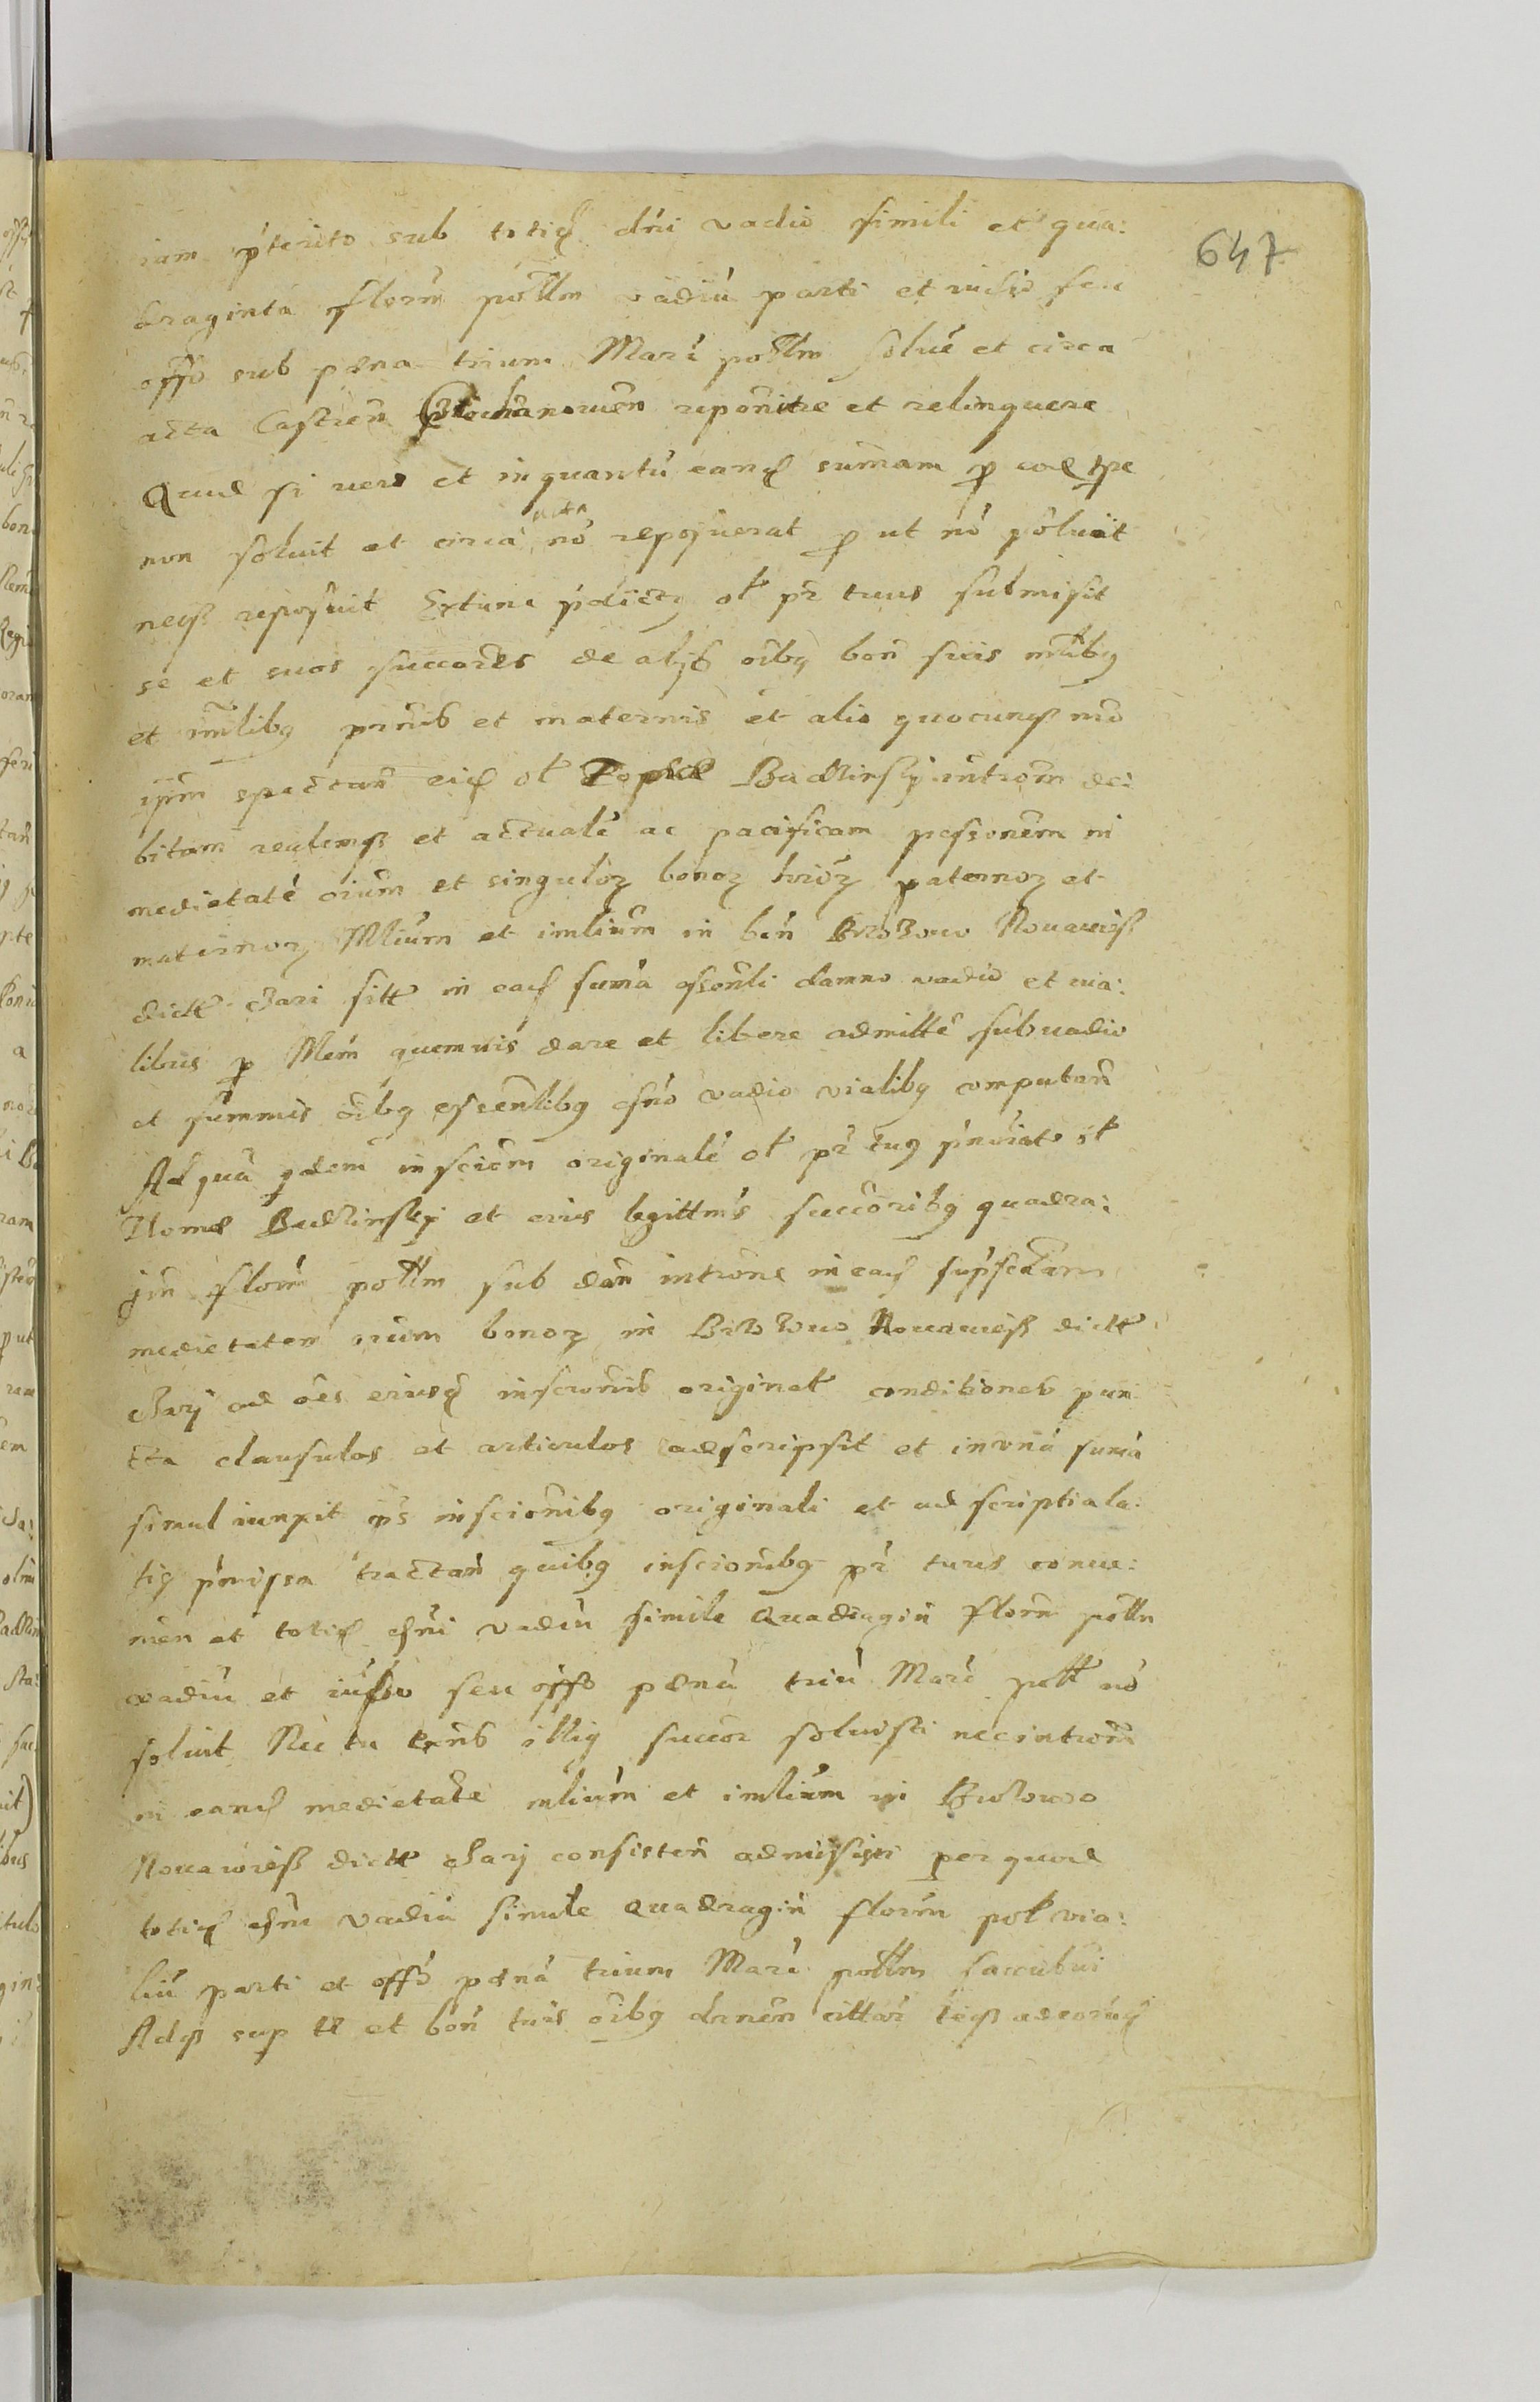 647
iam pterito sub totiq dni vadio simili et qua:
draginta florm pollm vadiu parti et iudio seu
offo sub pæna trium Marc pollm solue et circa
acta Castren reponere et relinquere
Quod si vero et inquantu eandq sumam p eod tpe
non soluit et circa acta no reposuerat p ut no soluit
neq reposuit Extunc pdictq ol pr tuus submisit
se et suos succores de alijs oibq bon suis mlibq
et imlibq prnis et maternis et alio quocunq mo
ipm spectan eidq ol Badlinskj intrōm de:
bitam realemq et actualé ac pacificam possionem in
medietaté oium et singuloz bonoz paternoz et
maternoz Mlium et imlium in bon Brzozowo Nouawieß
dictt Czari sitt in eadq suma essenli damno vadio et via:
libus p Mem quemuis dare et libere admitté sub vadio
et summis oibq essenlibq dno vadio vialibq computan
Ad quā qdem inscīem originalé ol pr tuq ol
Thomæ Badlinskj et eius legittms succoribq quadra:
gin florm pollm sub dan introne in eadq supsctam
medietatem oium bonoz in Brzozowo Nouawieß dictt
Czarj ad oes eiusdq inscrionis originał conditiones pun
cta clausulas et articulos adscripsit et in vnā sumā
simul iunxit inscionibq originali et ad scriptiala:
tiq pmissa tractan quibq inscionibq pr tuus conue:
nien et totiq dni vadiu simile Quadragin florm pollm
vadiu et iudio seu offo pænā triu Marc poll no
soluit Nec tu illiq succor soluisti nec introm
in eandq medietate mlium et imlium in Brzozowo
Nouawieß dictt Czarj consisten admisisti per quod
totiq dni vadiu simile Quadragin florm pol via:
liu parti et offo pænā trium Marc pollm succubui
Adq sup te et bon tuis oibq